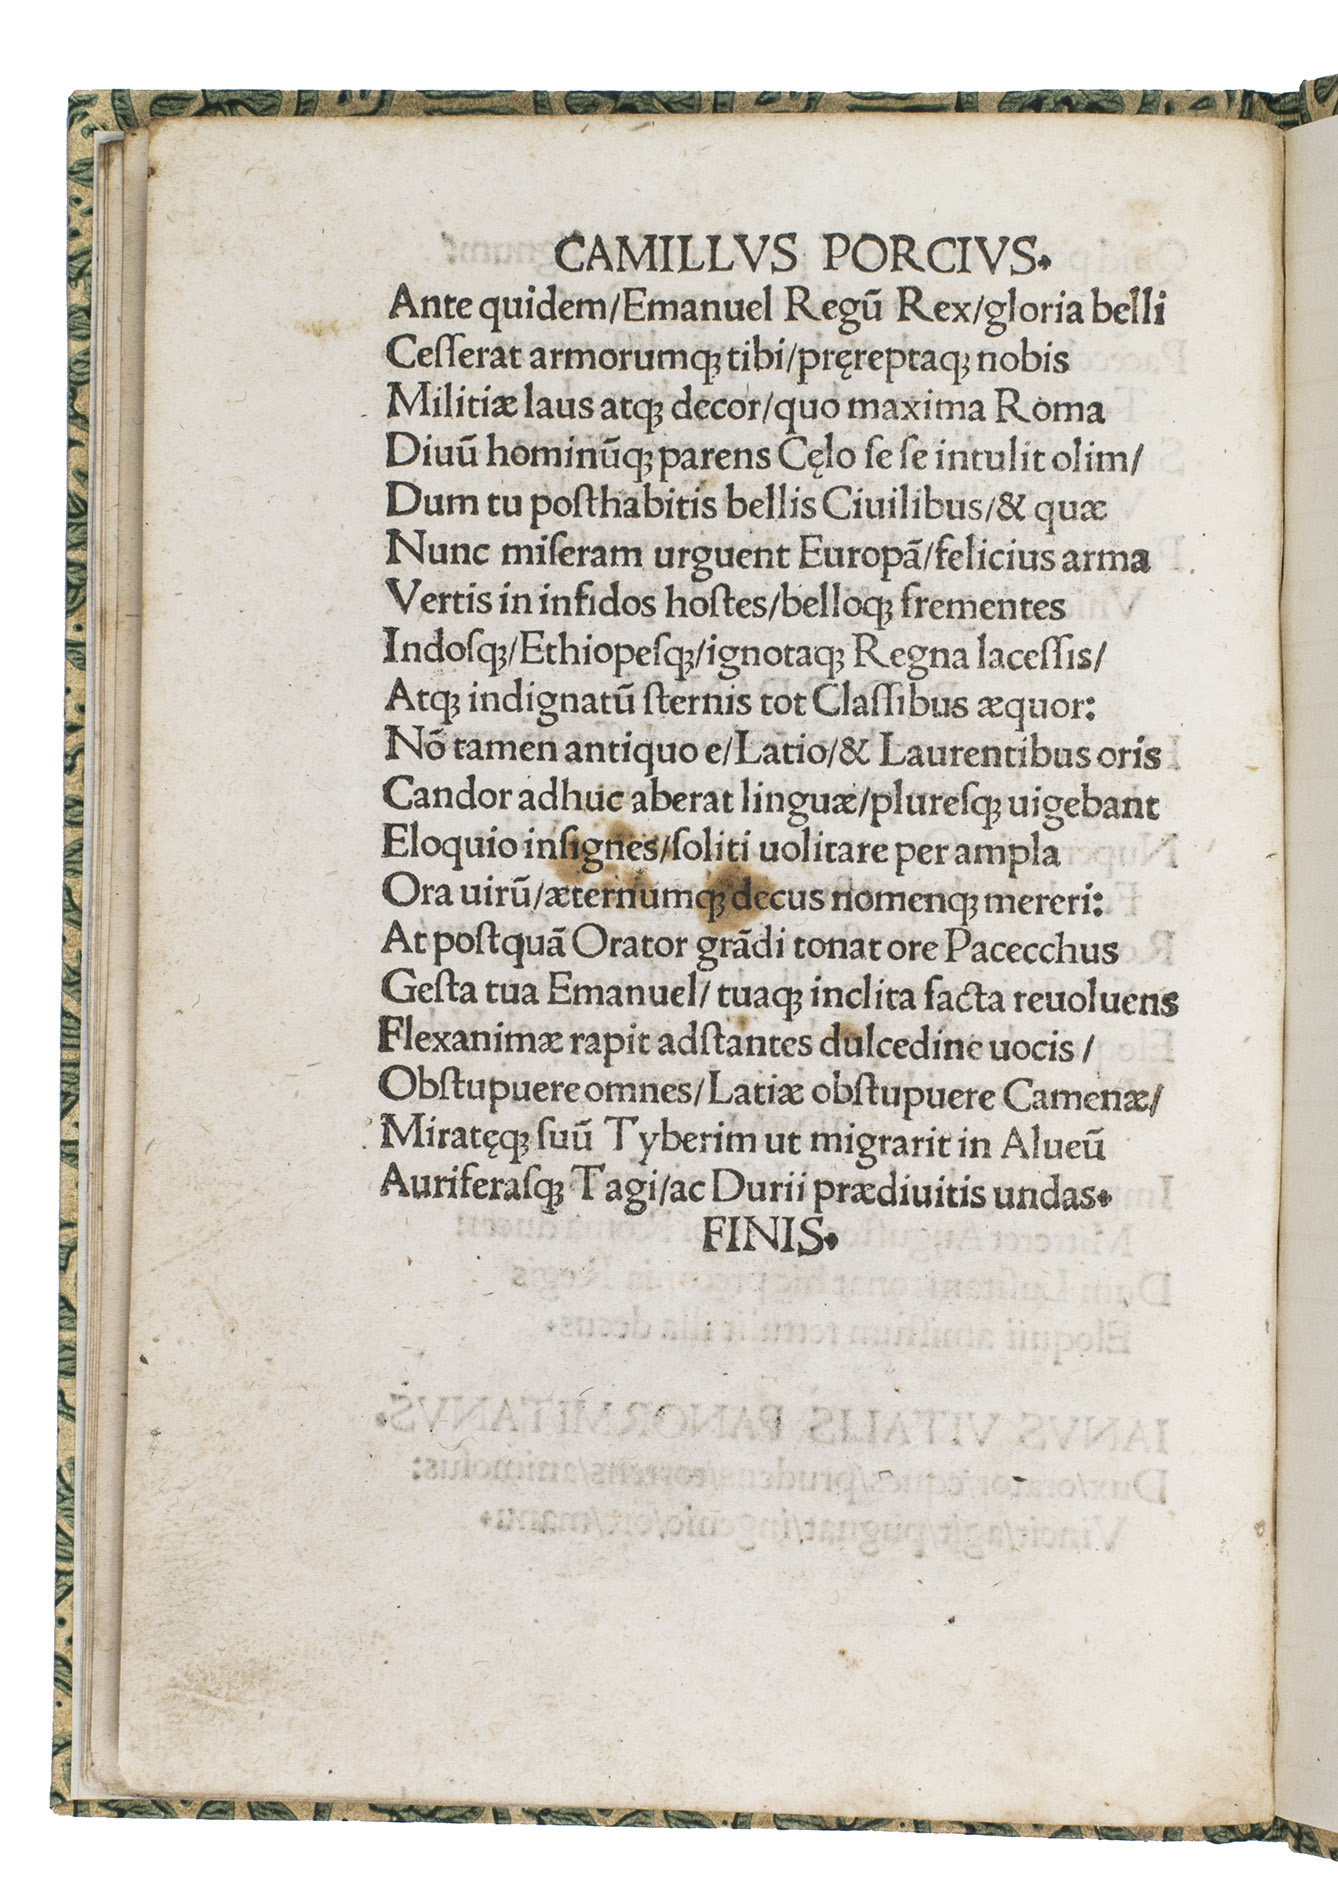 CAMILLVS PORCIVS.
Ante quidem/Emanuel Regũ Rex/gloria belli
Ceſſerat armorumqꝫ tibi/pręreptaqꝫ nobis
Militiæ laus atqꝫ decor/quo maxima Roma
Diuũ hominũqꝫ parens Cęlo ſe ſe intulit olim/
Dum tu poſthabitis bellis Ciuilibus/& quæ
Nunc miſeram urguent Europã/felicius arma
Vertis in infidos hoſtes/belloqꝫ frementes
Indoſqꝫ/Ethiopeſqꝫ/ignotaqꝫ Regna laceſſis/
Atqꝫ indignatũ ſternis tot Claſſibus æquor:
Nõ tamen antiquo e/Latio/& Laurentibus oris
Candor adhuc aberat linguæ/plureſqꝫ uigebant
Eloquio inſignes/ſoliti uolitare per ampla
Ora uirũ/æternumqꝫ decus nomenqꝫ mereri:
At poſtquã Orator grãdi tonat ore Pacecchus
Geſta tua Emanuel/tuaqꝫ inclita facta reuoluens
Flexanimæ rapit adſtantes dulcedine uocis/
Obſtupuere omnes/Latiæ obſtupuere Camenæ/
Miratęqꝫ ſuũ Tyberim ut migrarit in Alueũ
Auriferaſqꝫ Tagi/ac Durii prædiuitis undas.
FINIS.